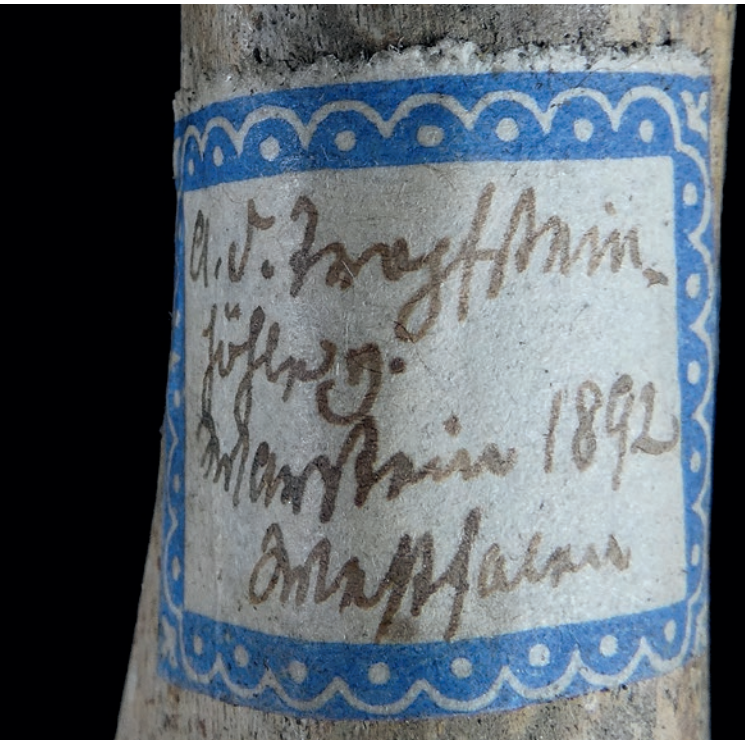 A. d. Tropfstein-
höhle z.
Warstein 1892
Westfalen